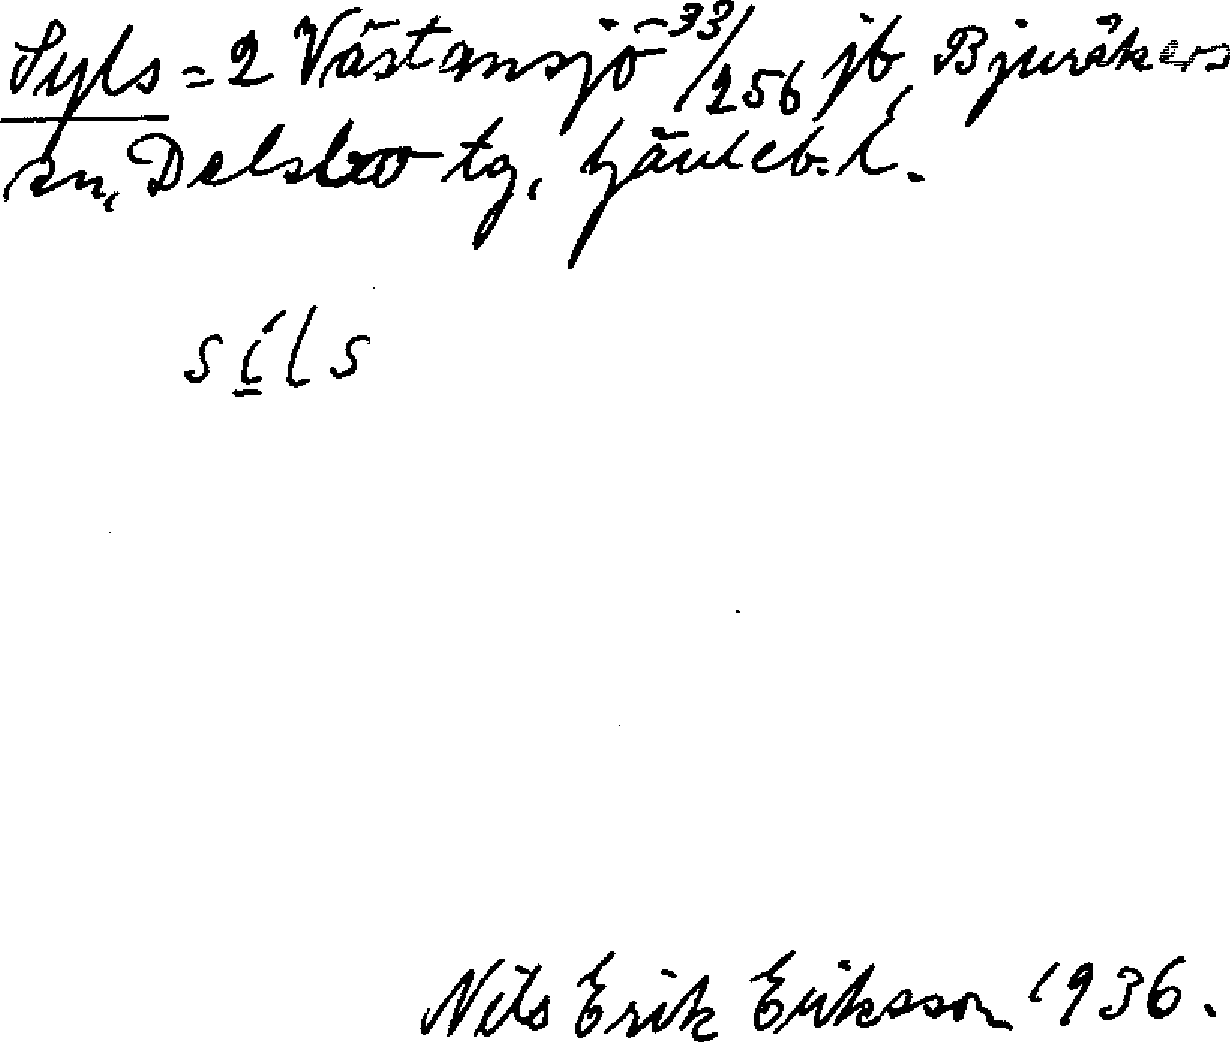 Syls = 2 Västansjö 33/256 jb, Bjuråkers
sn, Delsbo tg, Gävleb. l.
síls
Nils Erik Eriksson 1936.